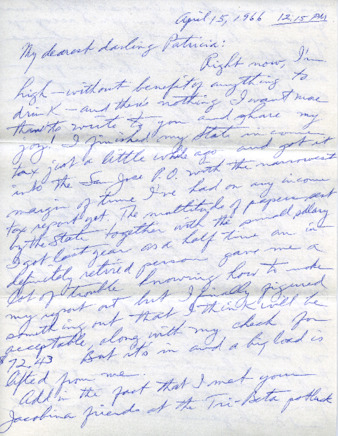 April 15, 1966 12:15 PM
My dearest darling Patricia:
Right now, I'm
high - without benefit of anything to
drink - and there's nothing I want more
than to write to you and share my
joy! I finished my State income
tax just a little while ago and got it
into the San Jose P.O. with the narrowest
margin of time I've had on any income
tax report yet. The multitude of papers sent
by the State together with the small salary
I got last year as a half time an in-
definitely retired person gave me a
lot of trouble knowing how to make
my report out but I finally figured
something out that I think will be
acceptable along with my check for
$72.43 But it's in and a big load is
lifted from me.
Add in the fact that I met your
Jacobina friends at the Tri-Beta potluck